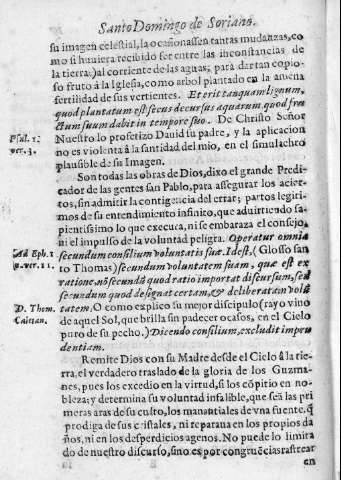 Santo Domingo de Soriano.
su imagen celestial, la ocasionassen tantas mudanzas, co-
mo si huuiera recibido ser entre las inconstancias de
la tierra:) al corriente de las aguas; para dar tan copio-
so fruto à la Iglesia, como arbol plantado en la amena
fertilidad de sus vertientes. Et erit tanquam lignum,
quod plantatum est secus decursus aquarum, quod fru-
ctum suum dabit in tempore suo. De Christo Señor
Nuestro lo profetizo Dauid su padre, y la aplicacion
no es violenta à la santidad del mio, en el simulachro
plausible de su Imagen.
Psal. 1.
ver. 3.
Son todas las obras de Dios, dixo el grande Predi-
cador de las gentes san Pablo, para assegurar los acier-
tos, sin admitir la contigencia del errar; partos legiti-
mos de su entendimiento infinito, que aduirtiendo sa-
pientissimo lo que executa, ni se embaraza el consejo,
ni el impulso de la voluntad peligra. Operatur omnia
secundum consilium voluntatis suæ. Idest, (Glosso san-
to Thomas) secundum voluntatem suam, quæ est ex
ratione, nõ secundũ quod ratio importat discursum, sed
secundum quod designat certam, & deliberatam volũ
tatem, O como explico su mejor discipulo (rayo vino
de aquel Sol, que brilla sin padecer ocasos, en el Cielo
puro de su pecho.) Dicendo consilium, excludit impru
dentiam.
Ad Eph. 1
ver. 11.
D. Thom.
Caietan.
Remite Dios con su Madre desde el Cielo à la tie-
rra, el verdadero traslado de la gloria de los Guzma-
nes, pues los excedio en la virtud, si los cõpitio en no-
bleza; y determina su voluntad infalible, que seã las pri
meras aras de su culto, los manantiales de vna fuente, q̃
prodiga de sus cristales, ni repara en los propios da
ños, ni en los desperdicios agenos. No puede lo limita
do de nuestro discurso, sino es por congruẽcias rastrear
en